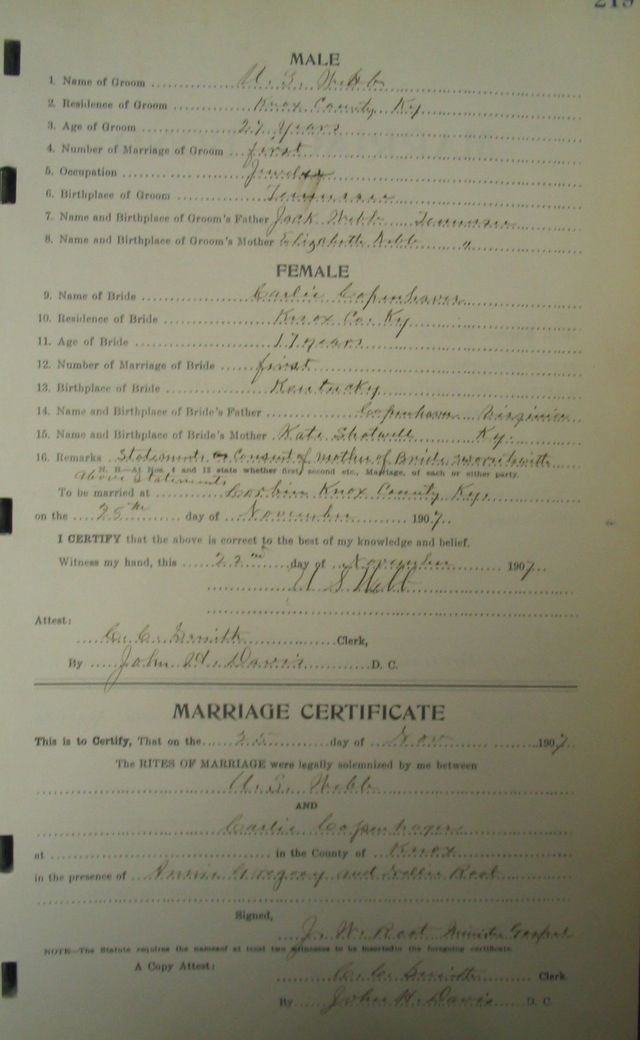 219
MALE
1. Name of Groom U. S. Webb
2. Residence of Groom Knox County, Ky
3. Age of Groom 27 Years
4. Number of Marriage of Groom first
5. Occupation Jeweler
6. Birthplace of Groom Tennessee
7. Name and Birthplace of Groom's Father Jack Webb Tennessee
8. Name and Birthplace of Groom's Mother Elizabeth Webb "
FEMALE
9. Name of Bride Carlie Copenhaver
10. Residence of Bride Knox Co. Ky
11. Age of Bride 17 years
12. Number of Marriage of Bride first
13. Birthplace of Bride Kentucky
14. Name and Birthplace of Bride's Father Copenhaver Virginia
15. Name and Birthplace of Bride's Mother Kate Shotwell Ky.
16. Remarks Statements Consent of mother of Bride
N. B.—At Nos. 4 and 12 state whether first, second etc., Marriage, of each or either party.
above Statements
To be married at Corbin Knox County Ky.
on the 25th day of November 1907.
I CERTIFY that the above is correct to the best of my knowledge and belief.
Witness my hand, this 22nd day of November 1907.
U S Webb
Attest:
C. C. Smith Clerk,
By John H. Davis D. C.
MARRIAGE CERTIFICATE
This is to Certify, That on the 25 day of Nov 1907.
The RITES OF MARRIAGE were legally solemnized by me between
U. S. Webb
AND
Carlie Copenhaver
at in the County of Knox
in the presence of Annie Gregory and Nellie Root
Signed,
J. W. Root Minister Gospel
NOTE—The Statute requires the names of at least two witnesses to be inserted in the foregoing certificate.
A Copy Attest: C. C. Smith Clerk
By John H. Davis D. C.